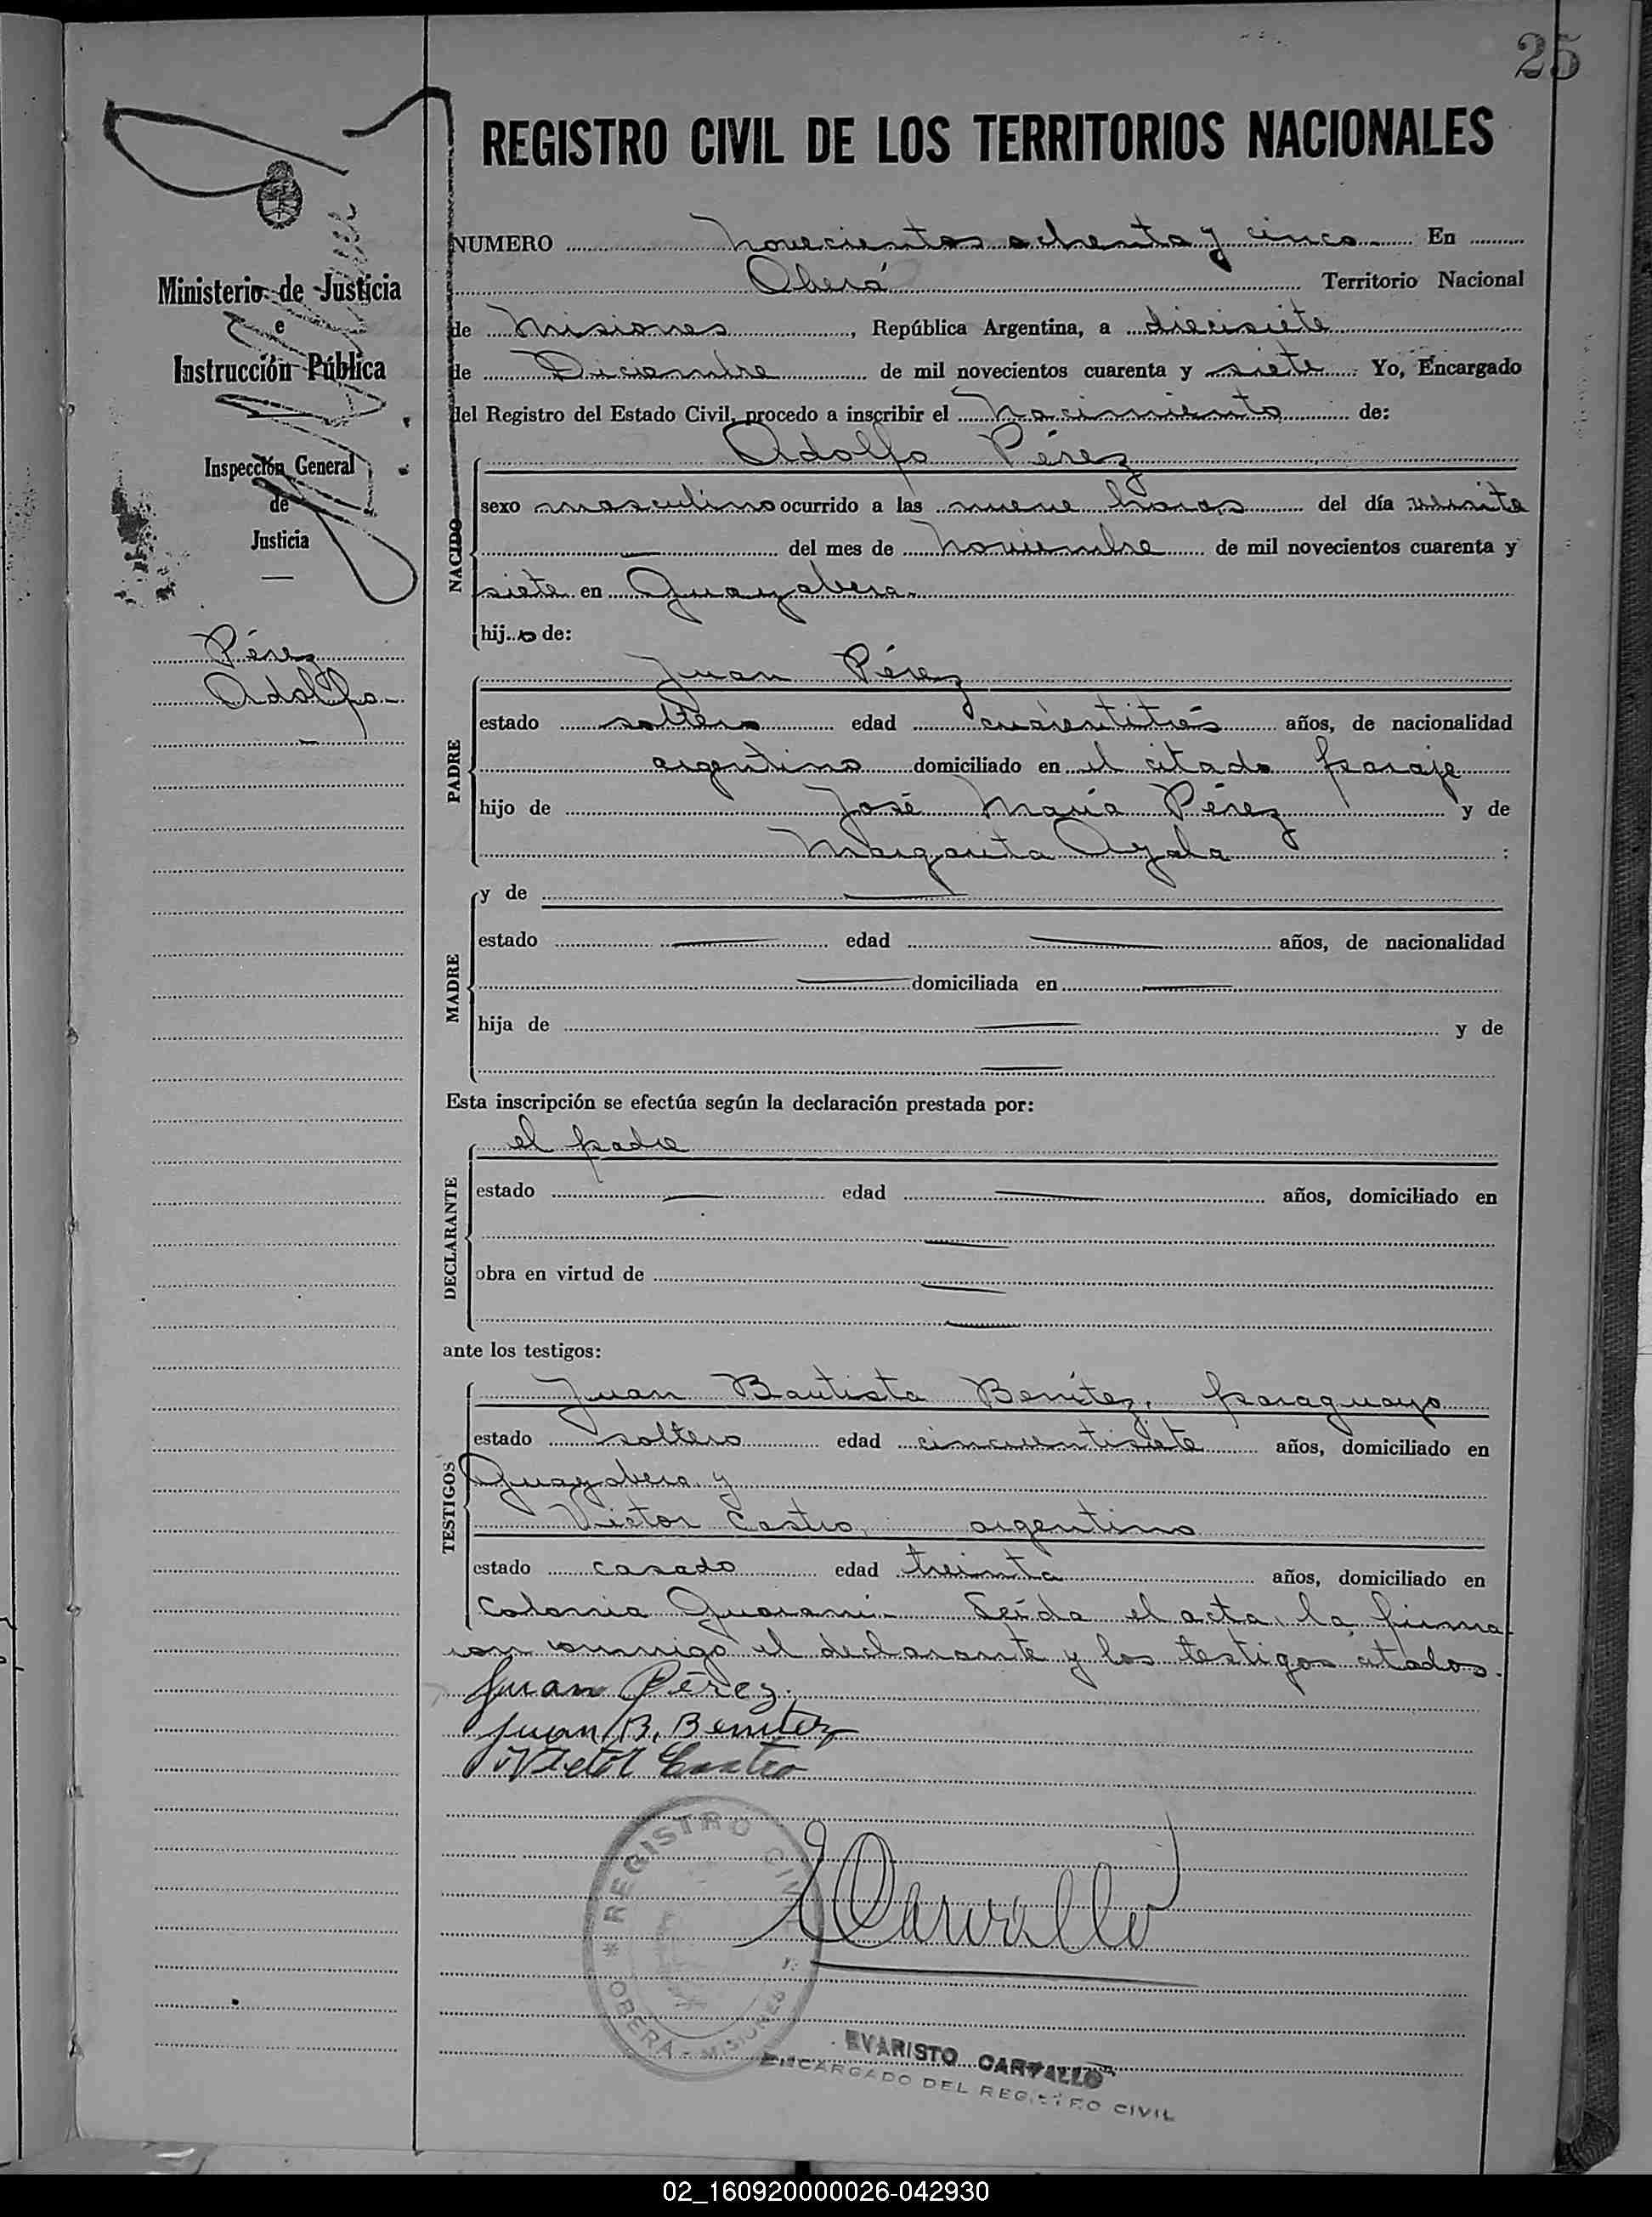 25
REGISTRO CIVIL DE LOS TERRITORIOS NACIONALES
Ministerio de Justicia
e
Instrucción Pública
Inspección General
de
Justicia
Pérez
Adolfo.-
NUMERO novecientos ochenta y cinco En
Oberá Territorio Nacional
de Misiones, República Argentina, a diecisiete
de Diciembre de mil novecientos cuarenta y siete Yo, Encargado
del Registro del Estado Civil, procedo a inscribir el nacimiento de:
NACIDO
Adolfo Pérez
sexo masculino ocurrido a las nueve horas del día veinte
del mes de noviembre de mil novecientos cuarenta y
siete en Guayabera.
hijo de:
PADRE
Juan Pérez
estado soltero edad cuarentitrés años, de nacionalidad
argentino domiciliado en el citado paraje
hijo de José María Pérez y de
Margarita Ayala :
MADRE
y de
estado edad años, de nacionalidad
domiciliada en
hija de y de
Esta inscripción se efectúa según la declaración prestada por:
DECLARANTE
el padre
estado edad años, domiciliado en
obra en virtud de
ante los testigos:
TESTIGOS
Juan Bautista Benítez, paraguayo
estado soltero edad cincuentisiete años, domiciliado en
Guayabera y
Victor Castro, argentino
estado casado edad treinta años, domiciliado en
Colonia Guaraní.- Leída el acta, la firma
con conmigo el declarante y los testigos citados.
Juan Pérez
Juan B. Benitez
Victor Castro
ECarvallo
REGISTRO CIVIL
OBERA - MISIONES
EVARISTO CARVALLO
ENCARGADO DEL REGISTRO CIVIL
02_160920000026-042930